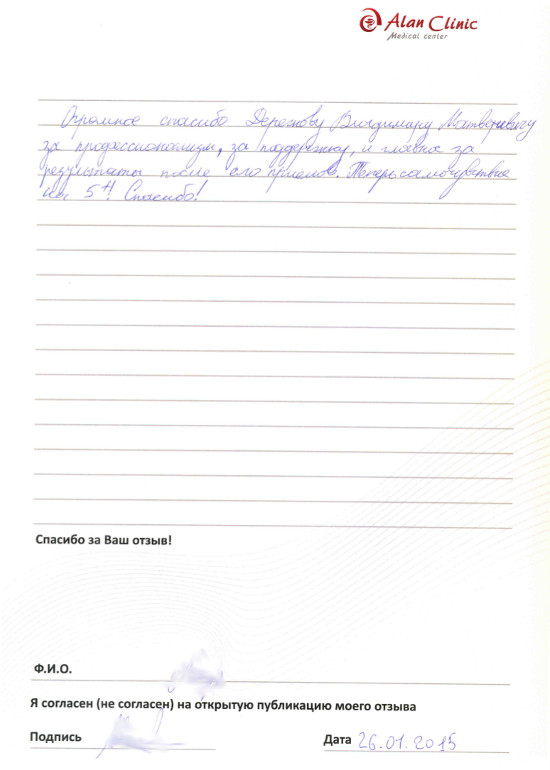 Alan Clinic
Medical center
Огромное спасибо Дерегову Владимиру Матвеевичу
за профессионализм, за поддержку, и главное за
результаты после его приемов. Теперь самочувствие
на 5+! Спасибо!
Спасибо за Ваш отзыв!
Ф.И.О.
Я согласен (не согласен) на открытую публикацию моего отзыва
Подпись
Дата 26.01.2015